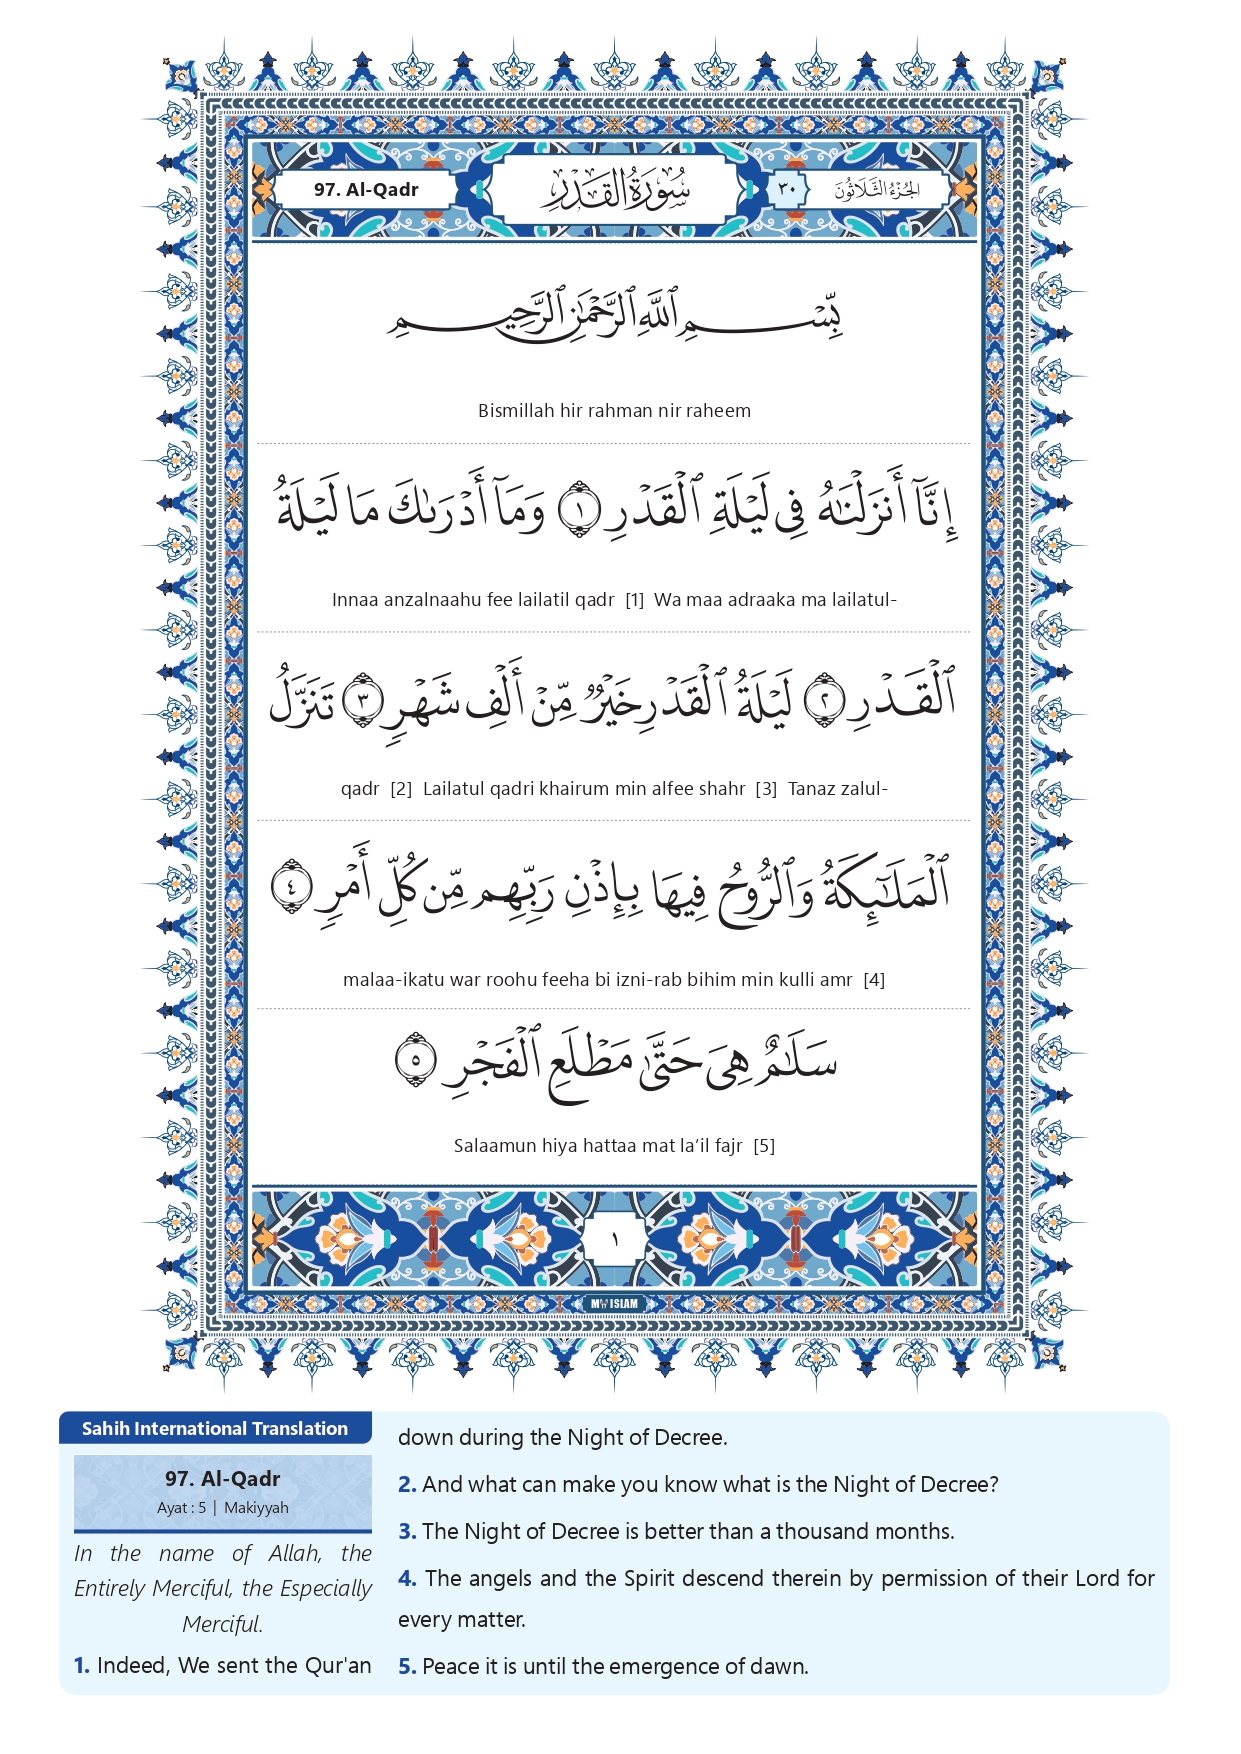 97. Al-Qadr
سُورَةُ القَدْرِ
٣٠
الجُزْءُ الثَّلَاثُونَ
بِسْمِ ٱللَّهِ ٱلرَّحْمَٰنِ ٱلرَّحِيمِ
Bismillah hir rahman nir raheem
إِنَّآ أَنزَلْنَٰهُ فِى لَيْلَةِ ٱلْقَدْرِ ١ وَمَآ أَدْرَىٰكَ مَا لَيْلَةُ
Innaa anzalnaahu fee lailatil qadr [1] Wa maa adraaka ma lailatul-
ٱلْقَدْرِ ٢ لَيْلَةُ ٱلْقَدْرِ خَيْرٌ مِّنْ أَلْفِ شَهْرٍ ٣ تَنَزَّلُ
qadr [2] Lailatul qadri khairum min alfee shahr [3] Tanaz zalul-
ٱلْمَلَٰٓئِكَةُ وَٱلرُّوحُ فِيهَا بِإِذْنِ رَبِّهِم مِّن كُلِّ أَمْرٍ ٤
malaa-ikatu war roohu feeha bi izni-rab bihim min kulli amr [4]
سَلَٰمٌ هِىَ حَتَّىٰ مَطْلَعِ ٱلْفَجْرِ ٥
Salaamun hiya hattaa mat la’il fajr [5]
١
MY ISLAM
Sahih International Translation
97. Al-Qadr
Ayat : 5 | Makiyyah
In the name of Allah, the
Entirely Merciful, the Especially
Merciful.
1. Indeed, We sent the Qur'an
down during the Night of Decree.
2. And what can make you know what is the Night of Decree?
3. The Night of Decree is better than a thousand months.
4. The angels and the Spirit descend therein by permission of their Lord for
every matter.
5. Peace it is until the emergence of dawn.